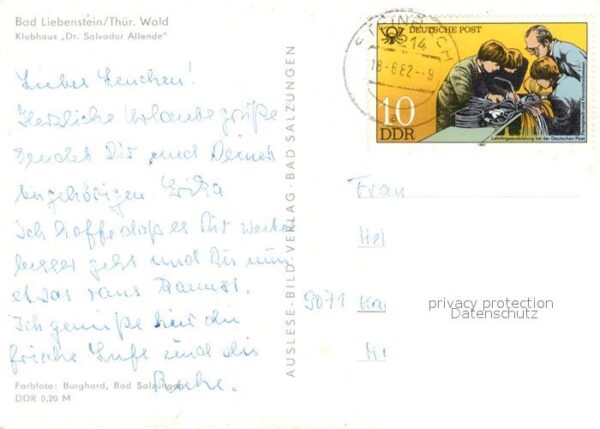 Bad Liebenstein/Thür. Wald
Klubhaus „Dr. Salvador Allende"
Liebes Lenchen!
Herzliche Urlaubsgrüße
sendet Dir und Deinen
Angehörigen Erika
Ich hoffe daß es Dir weiter
besser geht und Du nun
etwas raus kannst.
Ich genieße hier die
frische Luft und die
Ruhe.
Farbfoto: Burghard, Bad Salzungen
DDR 0,20 M
AUSLESE-BILD-VERLAG · BAD SALZUNGEN
DEUTSCHE POST
10
DDR
Lehrlingsausbildung bei der Deutschen Post
1981
18-6.82-9
Frau
Hel
9071
privacy protection
Datenschutz